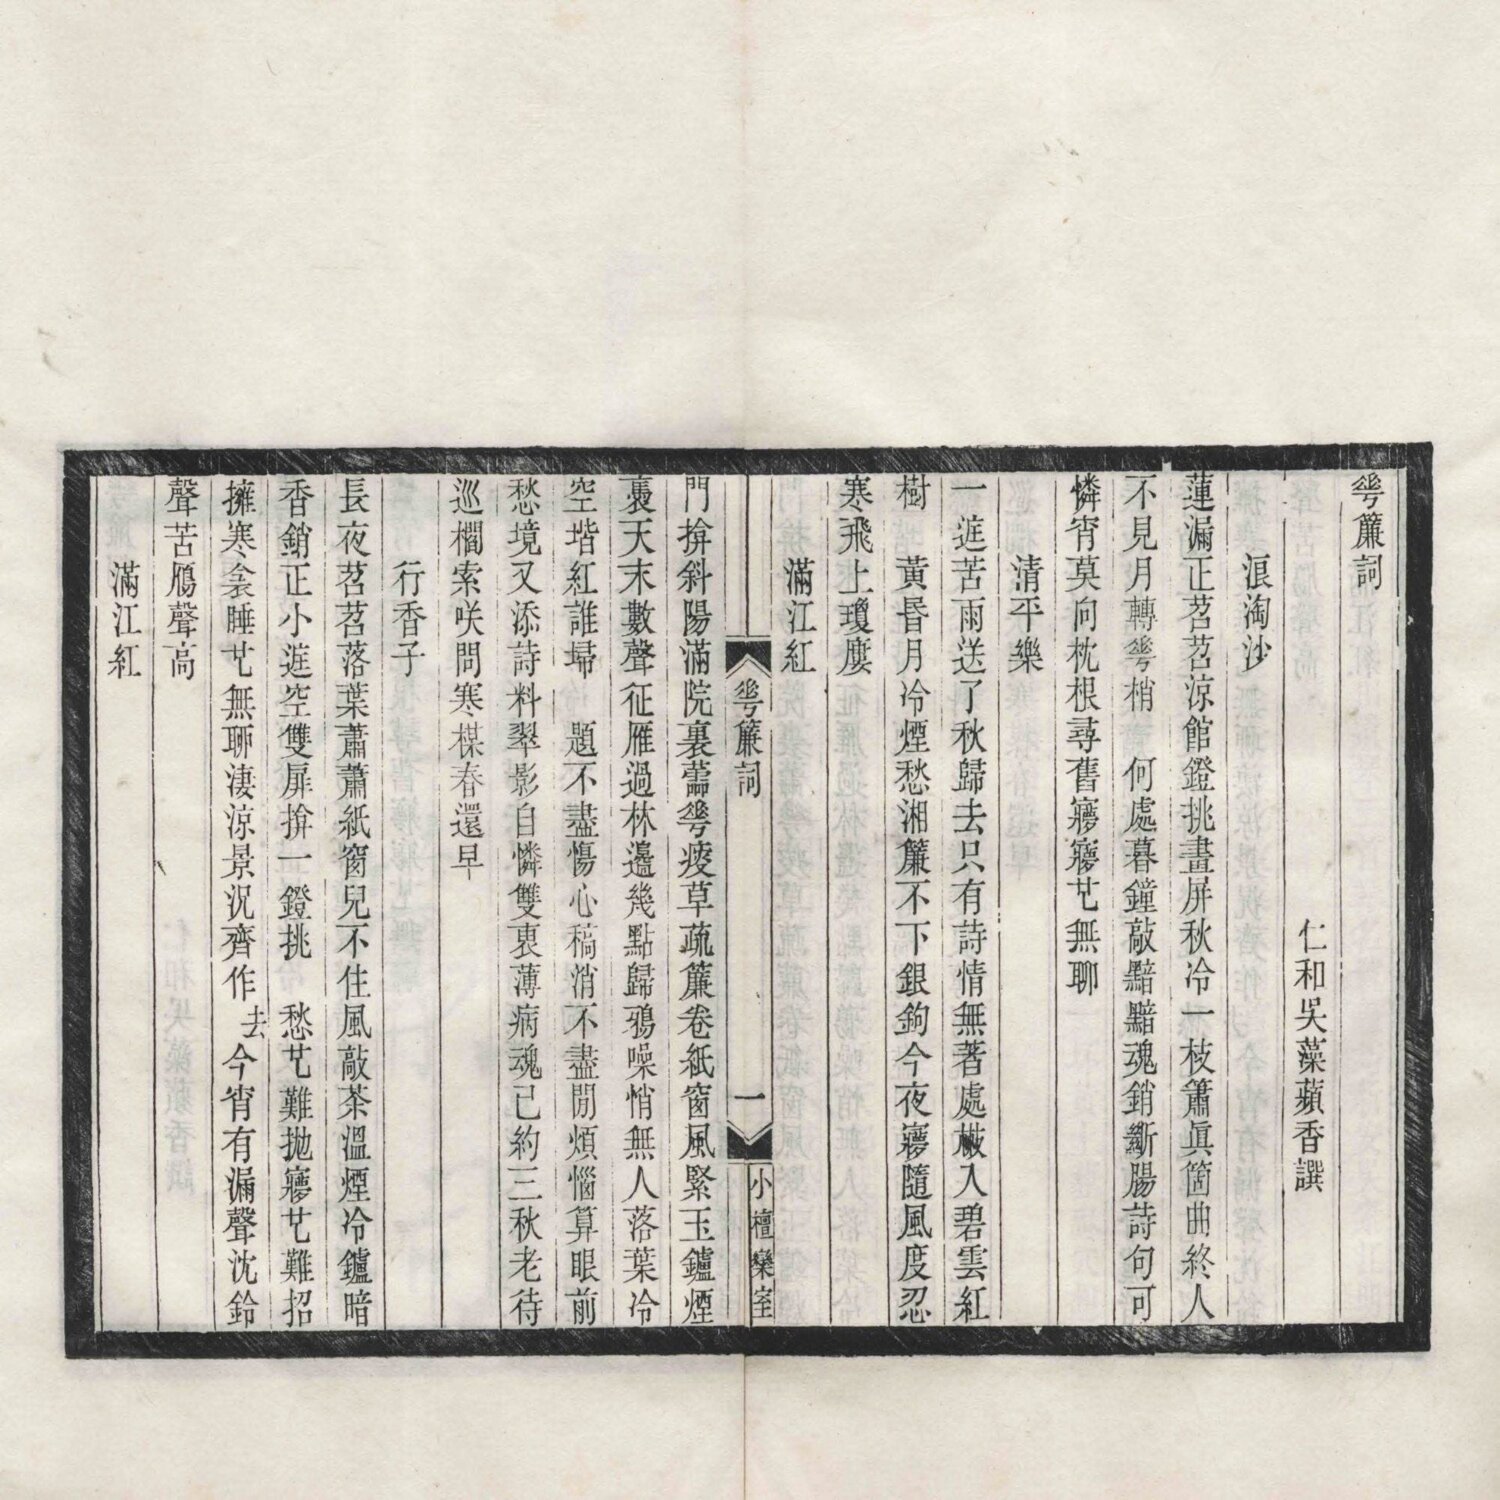 華簾詞
仁和吳藻蘋香譔
浪淘沙
蓮漏正苕苕涼館鐙挑畫屏秋冷一枝簫眞箇曲終人
不見月轉華梢　何處暮鐘敲黯黯魂銷斷腸詩句可
憐宵莫向枕根尋舊㝱㝱也無聊
清平樂
一庭苦雨送了秋歸去只有詩情無著處㪔入碧雲紅
樹　黃昏月冷煙愁湘簾不下銀鉤今夜㝱隨風度忍
寒飛上瓊廔
滿江紅
華簾詞
一
小檀欒室
門揜斜陽滿院裏華疲草疏簾卷紙窗風緊玉鑪煙
裊天末數聲征雁過林邊幾點歸鴉噪悄無人落葉冷
空堦紅誰埽　題不盡傷心稿消不盡閒煩惱算眼前
愁境又添詩料翠影自憐雙袖薄病魂已約三秋老待
巡櫩索咲問寒楳春還早
行香子
長夜苕苕落葉蕭蕭紙窗兒不住風敲茶溫煙冷鑪暗
香銷正小庭空雙屏揜一鐙挑　愁也難拋㝱也難招
擁寒衾睡也無聊淒涼景況齊作去今宵有漏聲沈鈴
聲苦鴈聲高
滿江紅